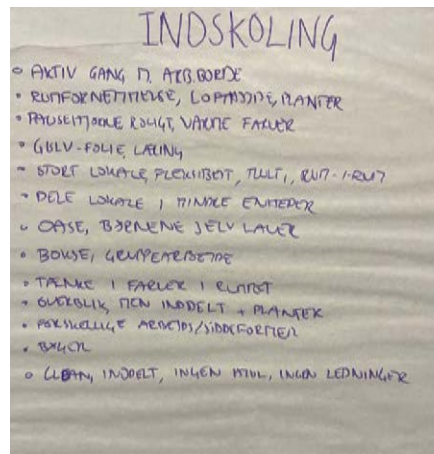 INDSKOLING
• AKTIV GANG M. ARB.BORDE
• RUMFORNEMMELSE, LOFTHØJDE, PLANTER
• ROLIGT, VARME FARVER
• GULV-FOLIE, LÆRING
• STORT LOKALE, FLEXIBELT, MULTI, RUM-I-RUM
• DELE LOKALE I MINDRE ENHEDER
• OASE, BØRNENE SELV LAVER
• BOKSE, GRUPPEARBEJDE
• TÆNKE I FARVER I RUMMET
• OVERBLIK, MEN INDDELT + PLANTER
• FORSKELLIGE ARBEJDS/SIDDEFORMER
• BØGER
• CLEAN, INDDELT, INGEN, INGEN LEDNINGER